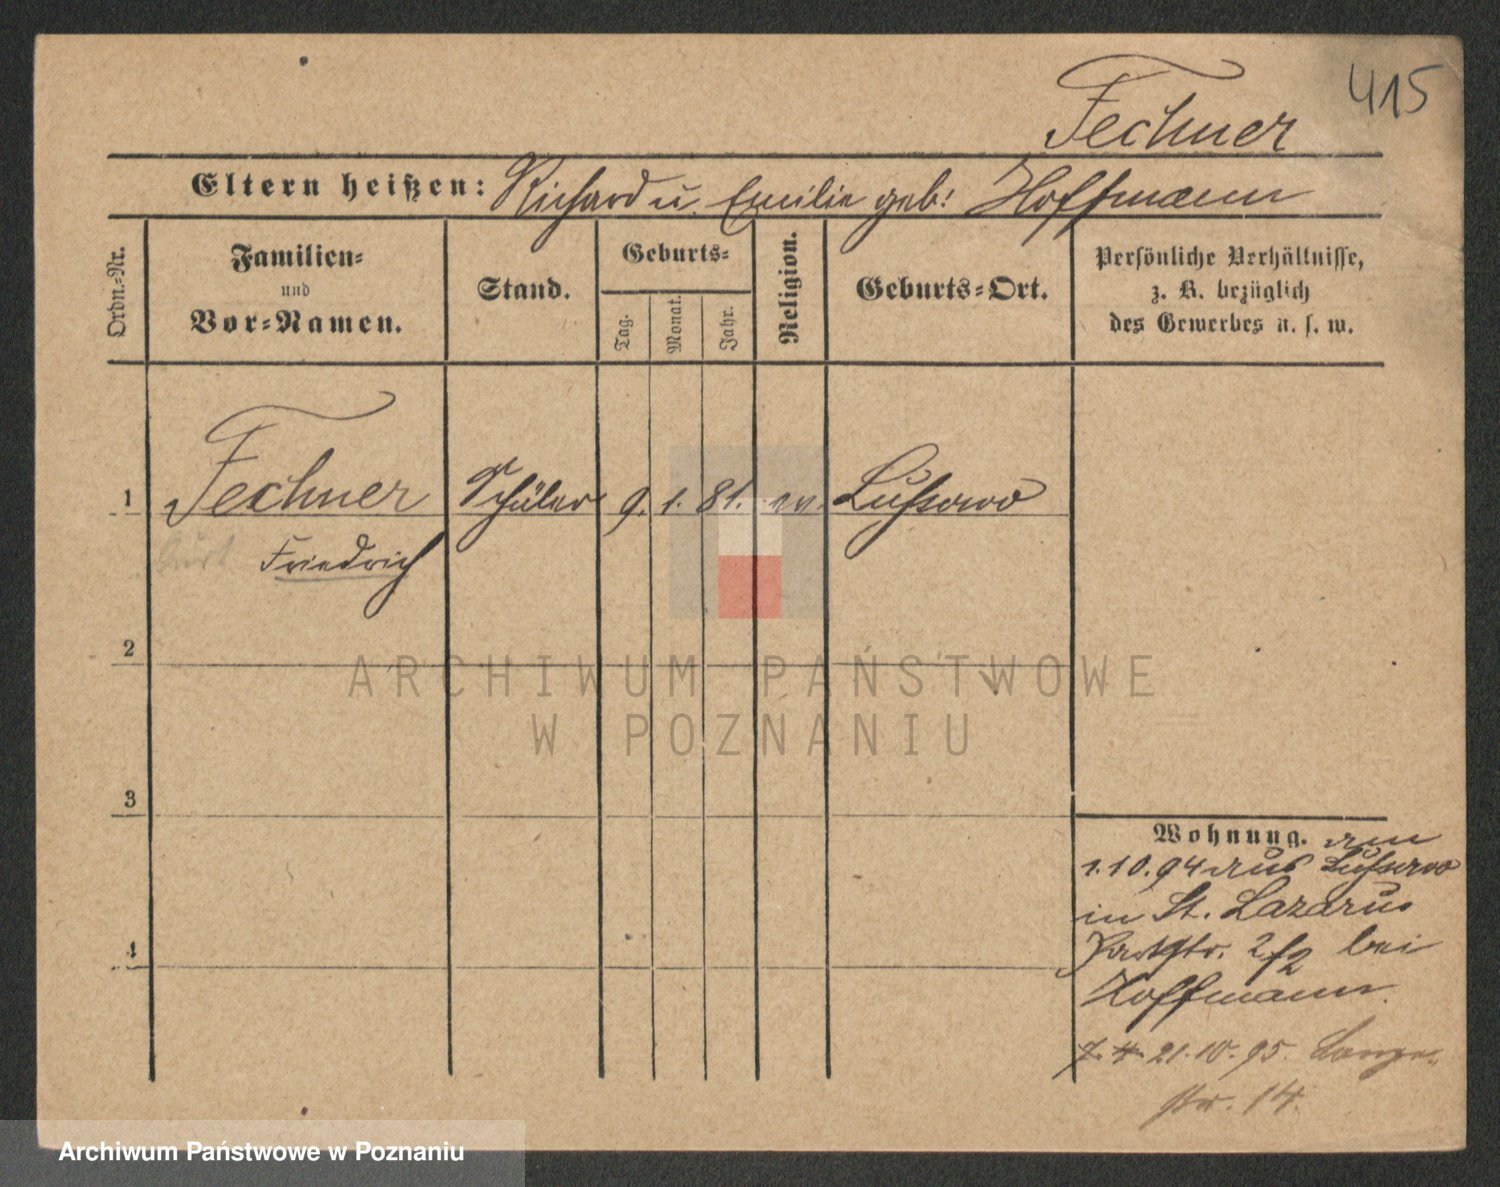 415
Fechner
Eltern heißen: Richard u. Emilie geb: Hoffmann
Ordn.-Nr.
Familien-
und
Vor-Namen.
Stand.
Geburts-
Tag.
Monat.
Jahr.
Religion.
Geburts-Ort.
Persönliche Verhältnisse,
z. B. bezüglich
des Gewerbes u. s. w.
1 Fechner Schüler 9. 1. 81. ev. Lussowo
Kurt Friedrich
2
3
4
Wohnung. am
1.10.94 aus Lussowo
in St. Lazarus
Parkstr. 2/2 bei
Hoffmann.
21.10.95. Lange-
str. 14.
ARCHIWUM PAŃSTWOWE
W POZNANIU
Archiwum Państwowe w Poznaniu